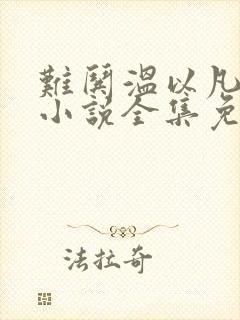 難鬨溫以凡
小說全集免
法拉奇